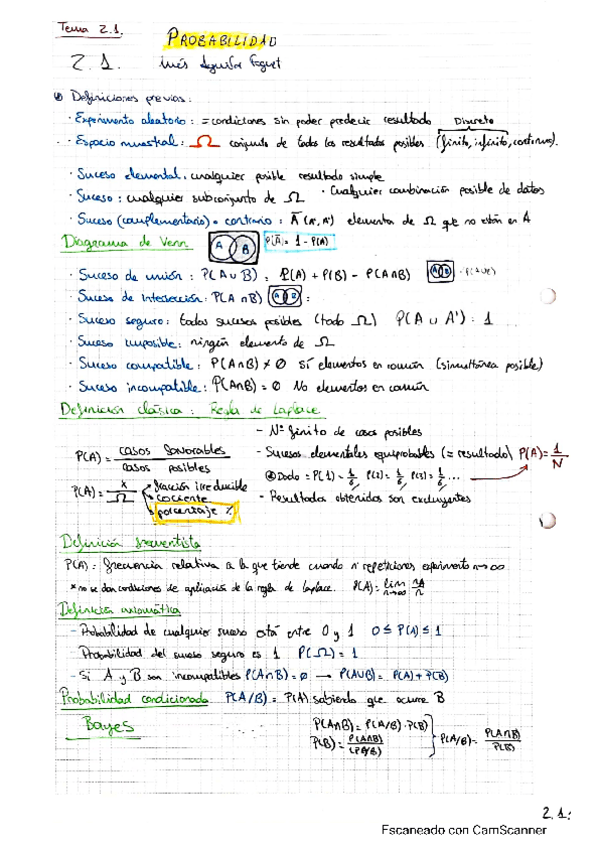 Tema 2.1.
PROBABILIDAD
2.1. Inés Aguilar
Definiciones previas:
· Experimento aleatorio: = condiciones sin poder predecir resultado
Discreto
· Espacio muestral: Ω conjunto de todos los resultados posibles (finito, infinito, continuo).
· Suceso elemental: cualquier posible resultado simple
· Suceso: cualquier subconjunto de Ω · Cualquier combinación posible de datos
· Suceso (complementario) o contrario: Ā (A', Aᶜ) elementos de Ω que no están en A
Diagrama de Venn A B P(Ā) = 1 - P(A)
· Suceso de unión: P(A∪B) = P(A) + P(B) - P(A∩B) A B P(A∪B)
· Suceso de intersección: P(A∩B) A B
· Suceso seguro: todos sucesos posibles (todo Ω) P(A ∪ A') = 1
· Suceso imposible: ningún elemento de Ω
· Suceso compatible: P(A∩B) ≠ Ø Sí elementos en común (simultánea posible)
· Suceso incompatible: P(A∩B) = Ø No elementos en común
Definición clásica: Regla de Laplace
- Nº finito de casos posibles
P(A) = casos favorables / casos posibles
- Sucesos elementales equiprobables (= resultado) P(A) = 1/N
Dado = P(1) = 1/6 P(2) = 1/6 P(3) = 1/6 ...
P(A) = x/Ω fracción irreducible
cociente
porcentaje %
- Resultados obtenidos son excluyentes
Definición frecuentista
P(A) = frecuencia relativa a la que tiende cuando nº repeticiones experimento n→∞
* no se dan condiciones de aplicación de la regla de Laplace. P(A) = lim n→∞ nA/n
Definición axiomática
- Probabilidad de cualquier suceso está entre 0 y 1 0 ≤ P(A) ≤ 1
- Probabilidad del suceso seguro es 1 P(Ω) = 1
- Si A y B son incompatibles P(A∩B) = Ø → P(A∪B) = P(A) + P(B)
Probabilidad condicionada P(A/B) = P(A) sabiendo que ocurre B
Bayes
P(A∩B) = P(A/B) · P(B)
P(B) = P(A∩B) / P(A/B)
P(A/B) = P(A∩B) / P(B)
2.1:
Escaneado con CamScanner